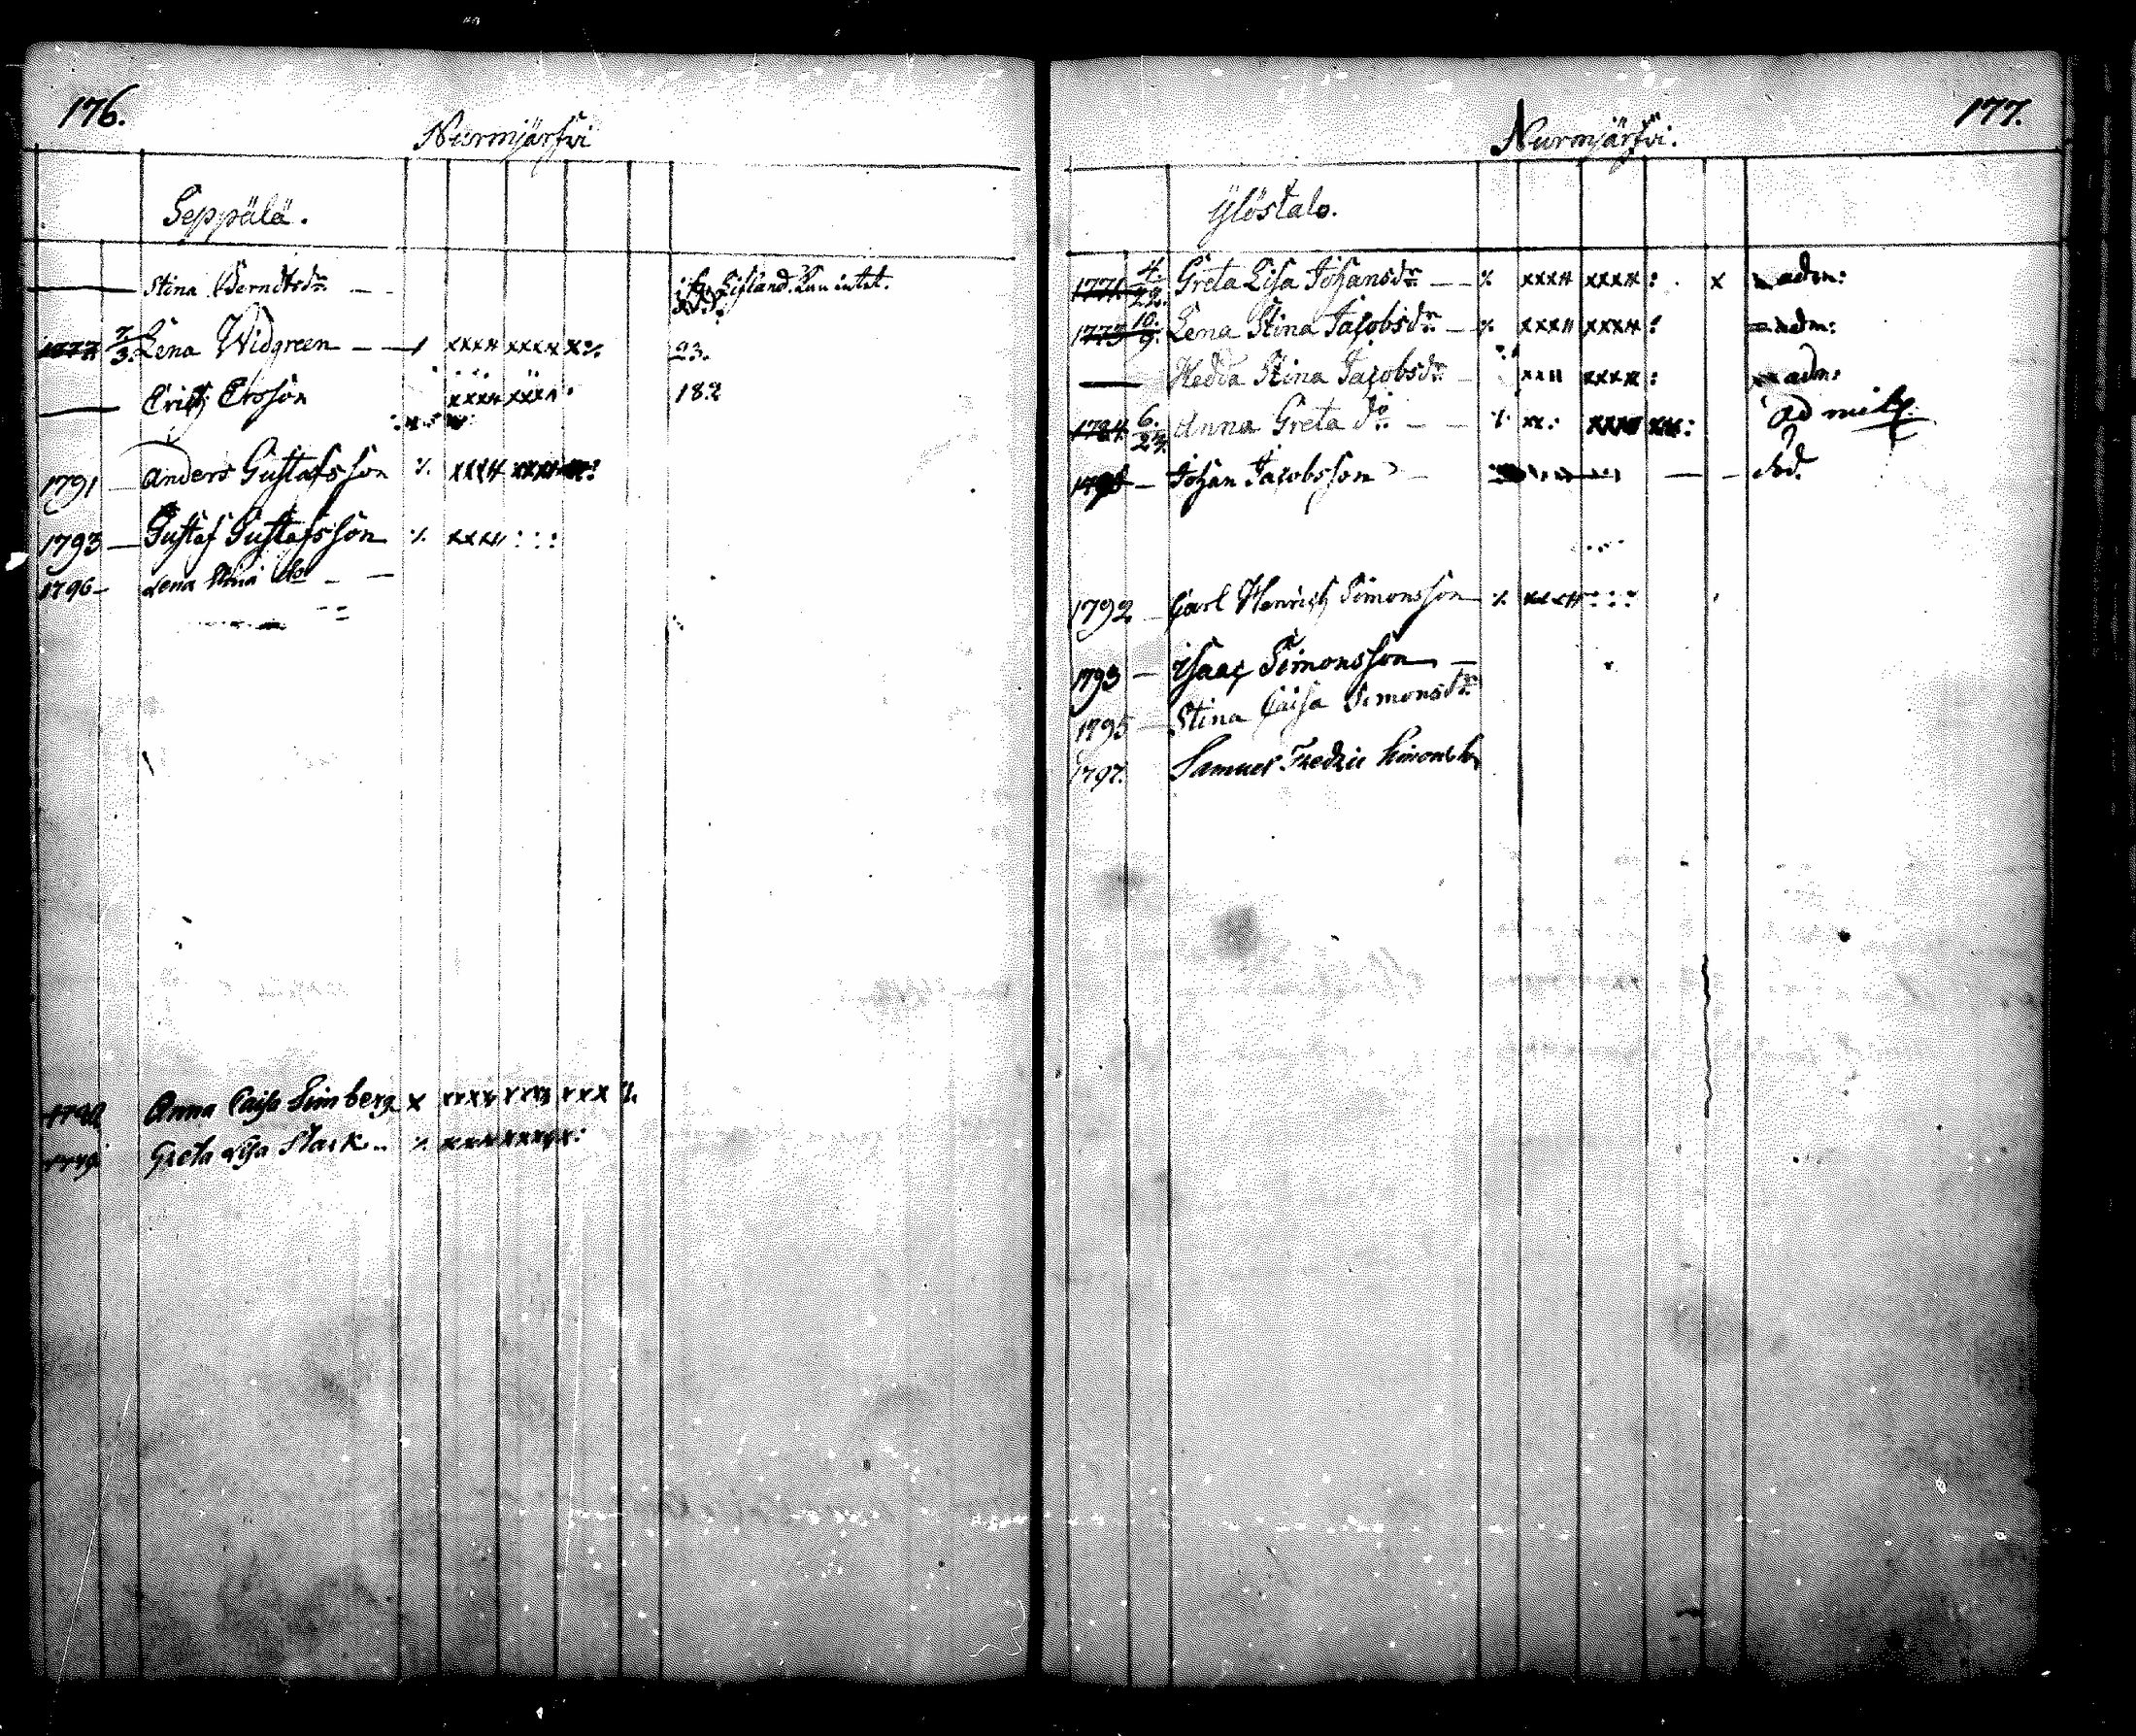 176.
Nurmjärfwi
Seppälä.
Stina Berndtsdr.
i Lifland. Kan intet.
7/3. Lena Widgreen xxxx xxxx x
23.
Erich Ersson xxxx xxxx
182
1791 Anders Gustafsson xxxx xxxx
1793 Gustaf Gustafsson xxxx
1796 Lena Stina do
Anna Caisa Limberg x xxxx xxxx xxx
Greta Lisa Stark xxxx xxxx
177.
Nurmjärfwi.
Ylöstalo.
1771. 4/22. Greta Lisa Johansdr. xxxx xxxx x adm:
1773 10/9. Lena Stina Jacobsdr. xxxx xxxx adm:
Hedda Stina Jacobsdr. xxxx xxxx adm:
1784 6/24. Anna Greta do xx xxxx xx admitt.
Johan Jacobsson
1792 Carl Henrich Simonsson xxxx
1793 Isaac Simonsson
1795 Stina Caisa Simonsdr.
1797. Samuel Fredric Simonsson